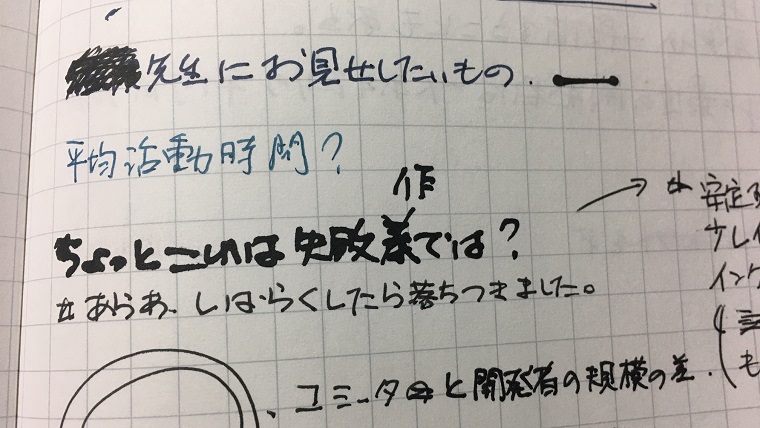 先生にお見せしたいもの.
平均活動時間?
作
ちょっとこれは失敗では?
☆あらあ、しばらくしたら落ちつきました。
安定
少し
インク
、コミッターと開発者の規模の差.
も